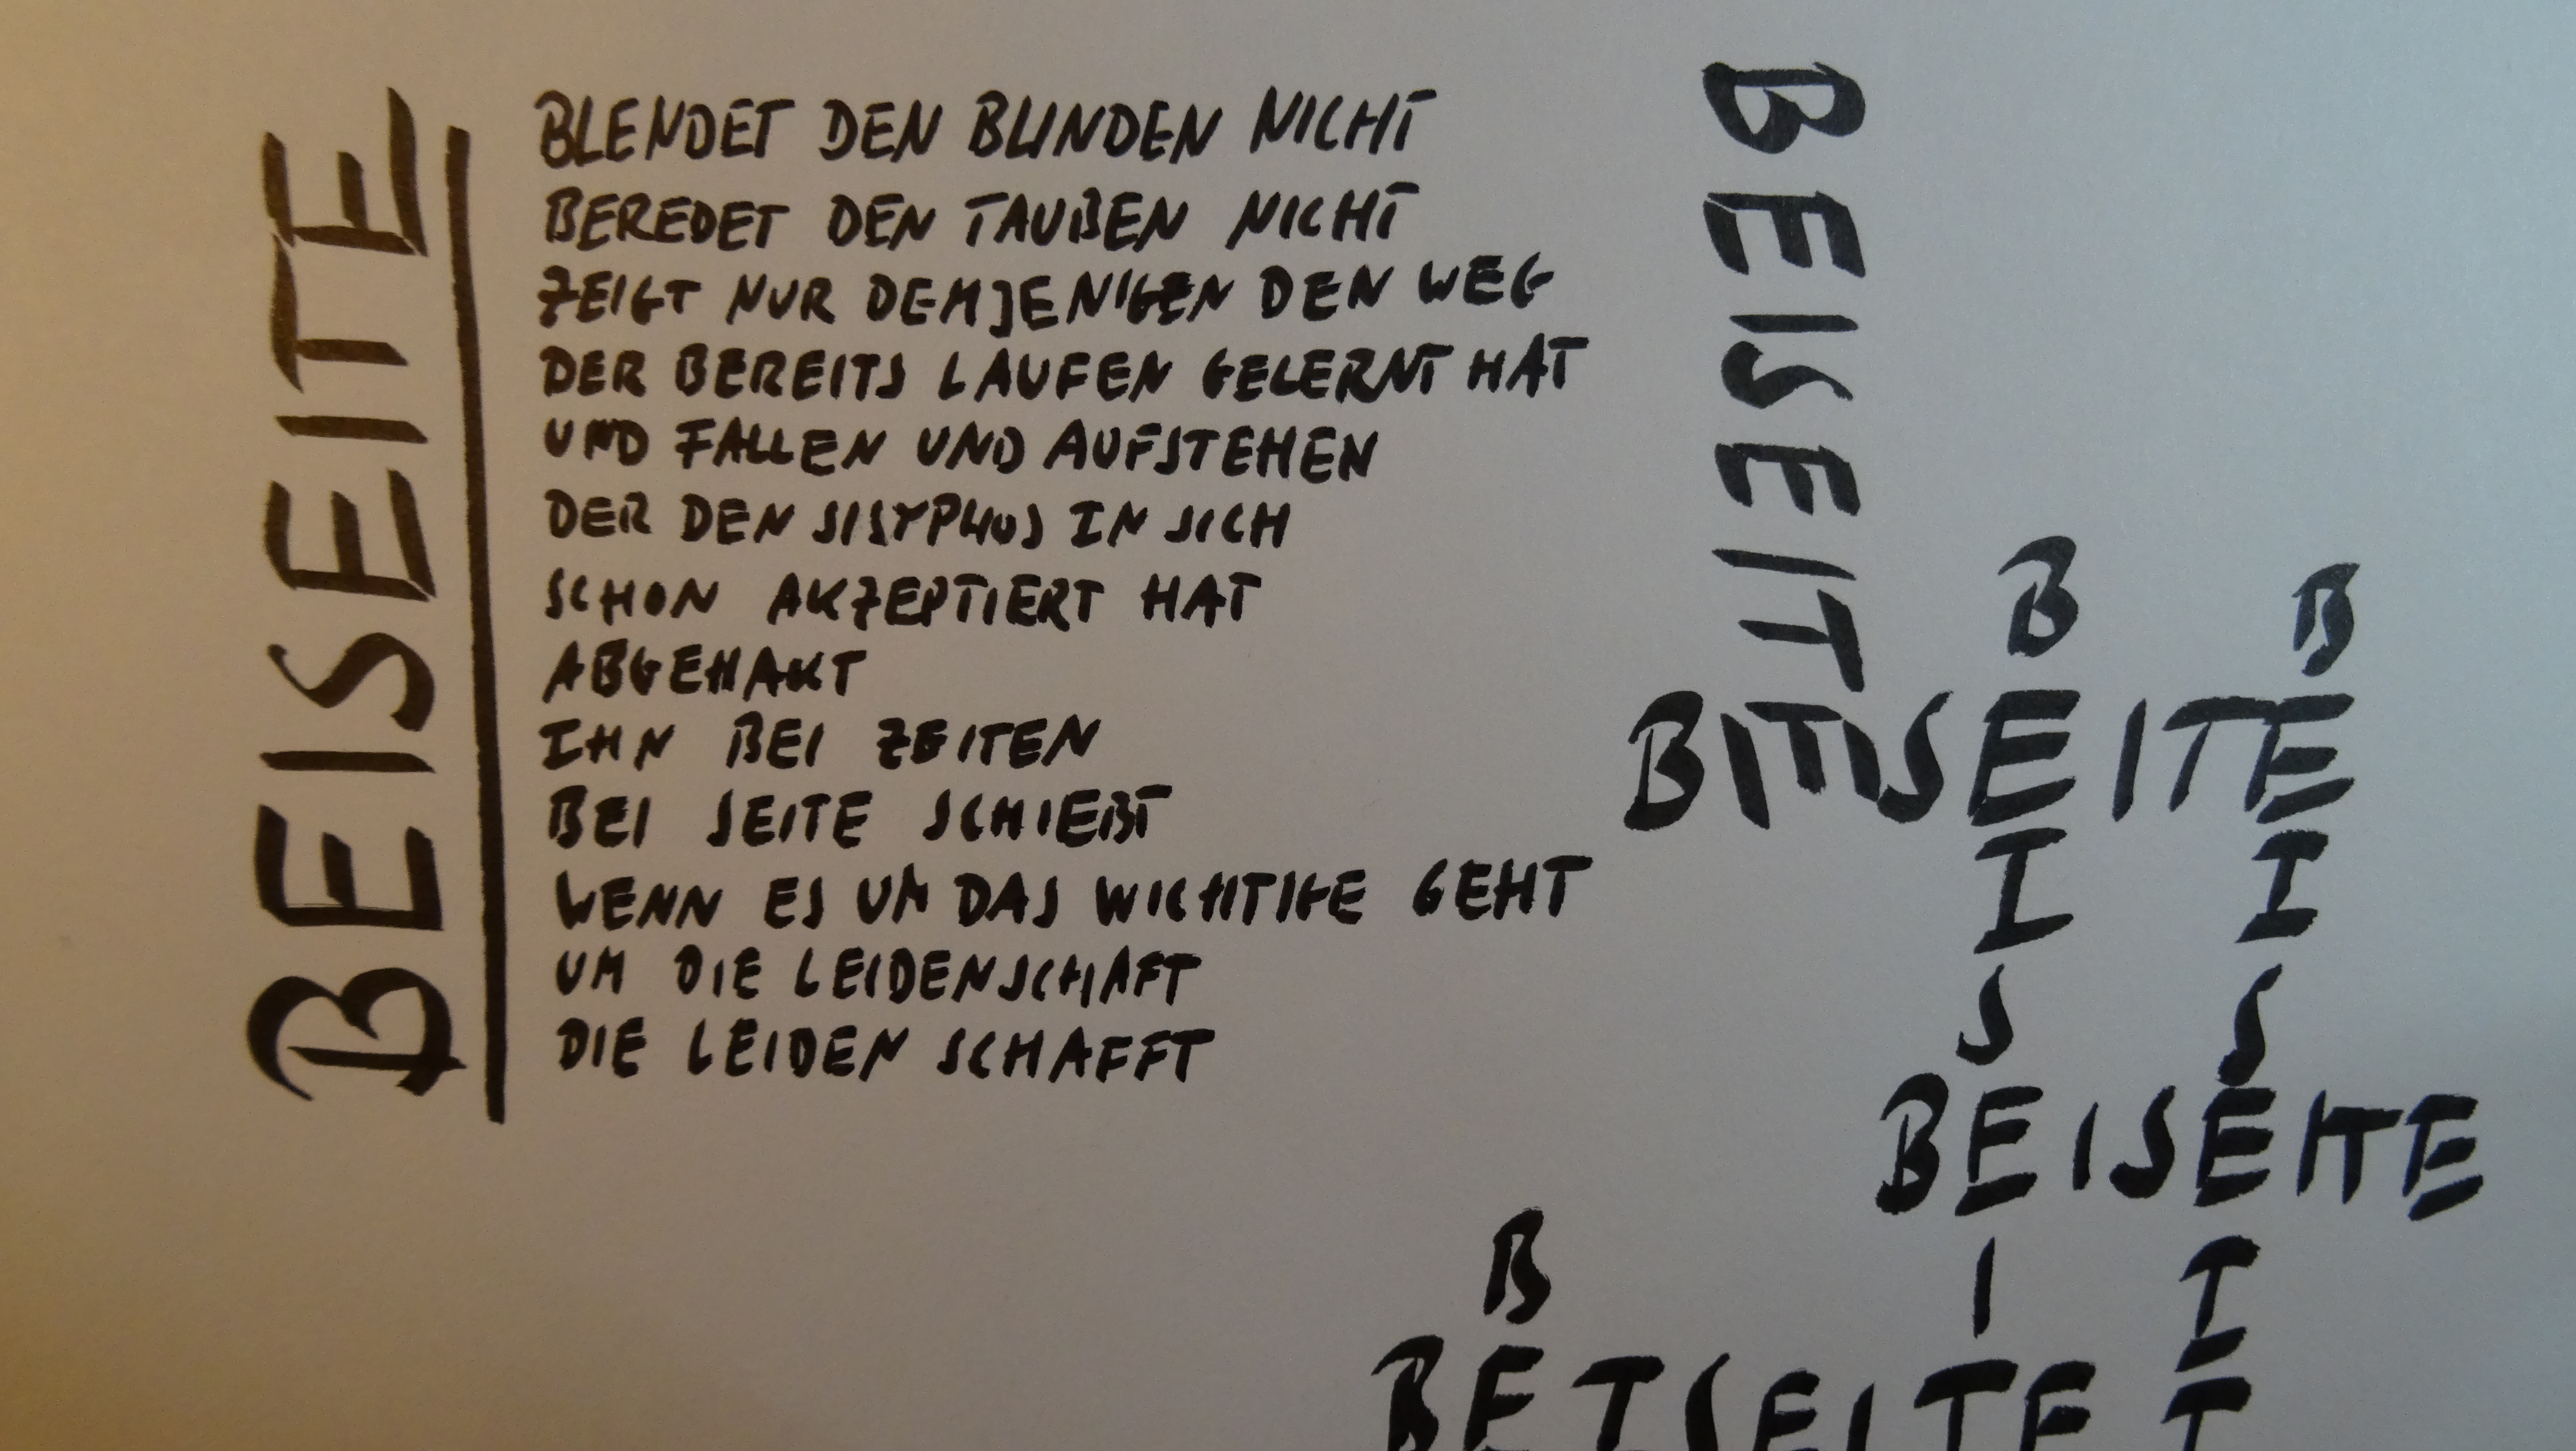 BEISEITE
BLENDET DEN BLINDEN NICHT
BEREDET DEN TAUBEN NICHT
ZEIGT NUR DEMJENIGEN DEN WEG
DER BEREITS LAUFEN GELERNT HAT
UND FALLEN UND AUFSTEHEN
DER DEN SISYPHOS IN SICH
SCHON AKZEPTIERT HAT
ABGEHAKT
IHN BEI ZEITEN
BEI SEITE SCHIEBT
WENN ES UM DAS WICHTIGE GEHT
UM DIE LEIDENSCHAFT
DIE LEIDEN SCHAFFT
BEISEITE
BEISEITE
BEISEIT
BEISEIT
BEISEITE
BE
BEISEITE